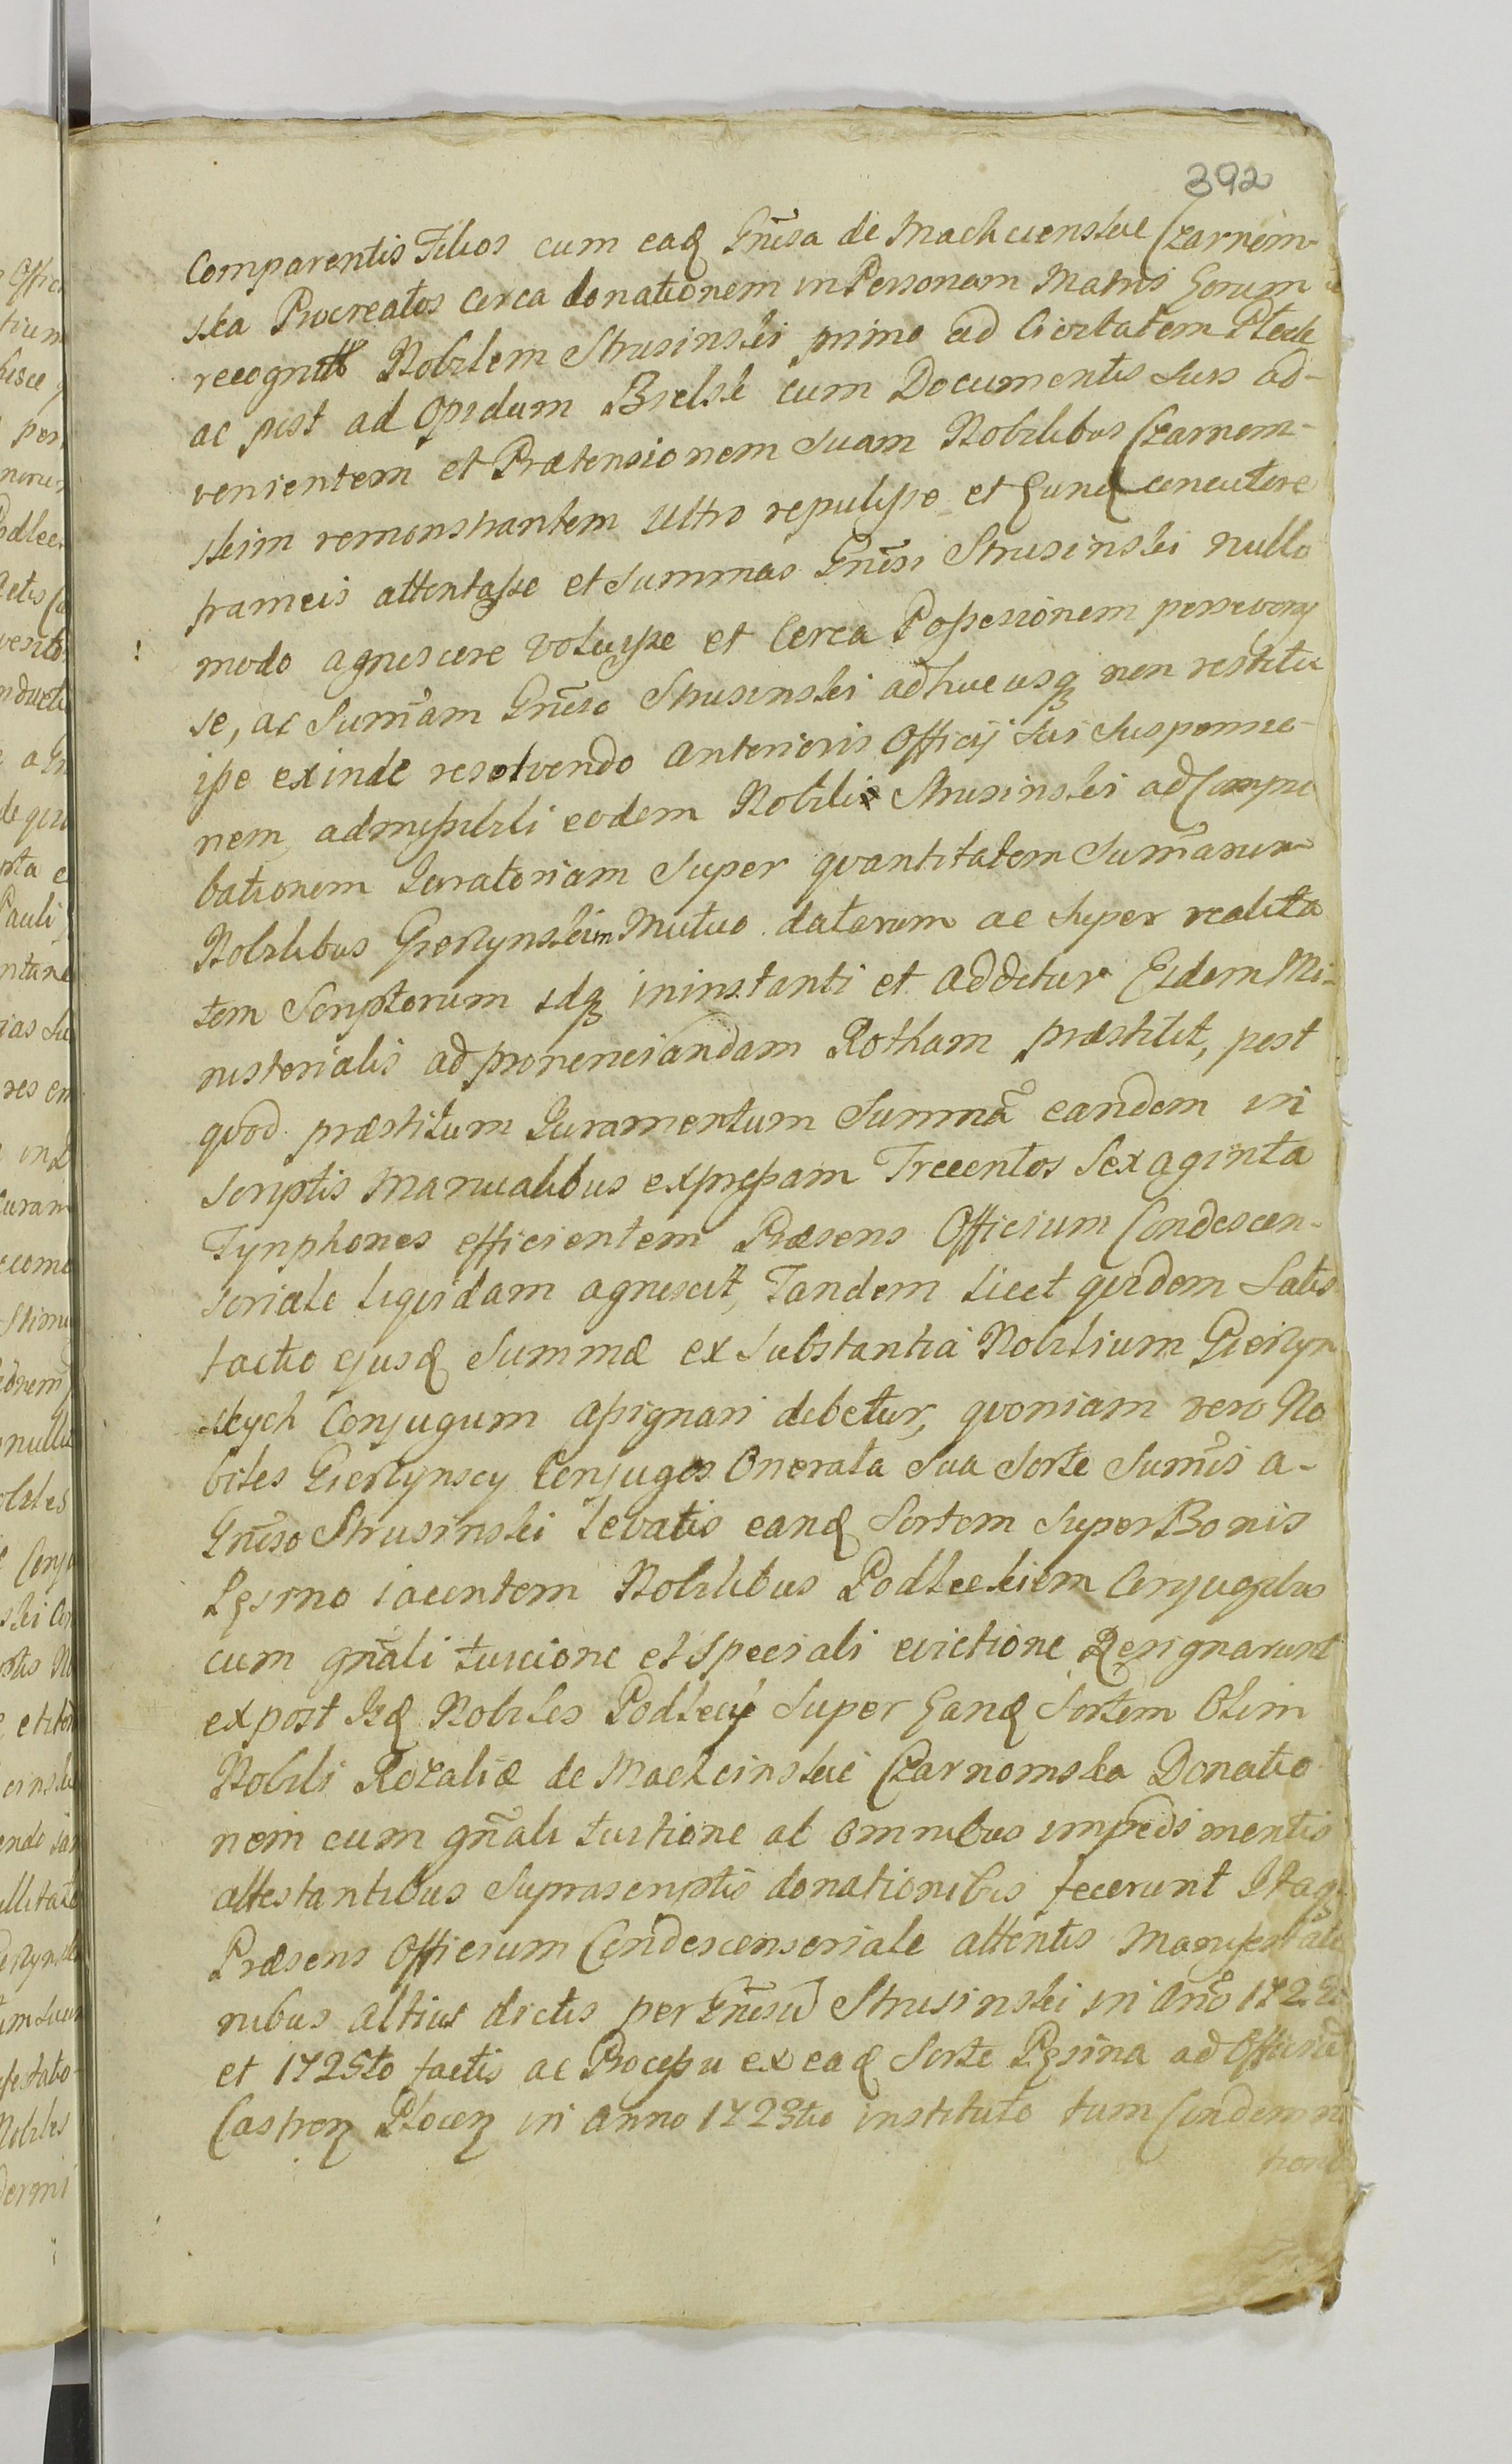 392
Comparentis Filios cum eaq Gnŕsa de Machcienskie Czarnom-
ska Procreatos cerca donationem in Personam Matris Eorum
recognitt Nobilem Strusinski primo ad Civitatem Płock
ac post ad Opidum Bielsk cum Documentis Suis ad-
venientem et Prætensionem Suam Nobilibus Czarnom-
skim remonstrantem Ultro repulisse et Eunq concutere
frameis attentasse et Summas Gnŕsi Strusinski nullo
modo agnoscere Voluisse et Cerca Possesionem
se, ac Sumam Gnŕso Strusinski adhucusq non restitu
isse exinde resolvendo anterioris Officij Sui Suspensio-
nem admissibili eodem Nobili Strusinski ad Compro
bationem Juratoriam Super quantitatem Sumarum
Nobilibus Gierłynskim Mutuo datarum ac Super realita
tem Scriptorum idq ininstanti et additur Eidem Mi-
nisterialis ad pronunciandam Rotham præstitit, post
quod præstitum Juramentum Summã eandem in
scriptis Manualibus expressam Trecentos Sexaginta
Tynphones efficientem Præsens Officium Condescen-
soriale liquidam agnoscit, Tandem licet quidem Satis
factio ejusq Summæ ex Substantia Nobilium Gierłyn
skych Conjugum assignari debetur, quoniam vero No
biles Gierłynscy Conjuges Onerata Sua Sorte Sumis a-
Gnŕso Strusinski levatis eanq Sortem Super Bonis
Łęsino iacentem Nobilibus Podleckiem Conjugibus
cum gnali tuicione et Speciali evictione Resignarunt
expost Iiq Nobiles Podlecy Super Eanq Sortem Olim
Nobili Rozaliæ de Machcinskie Czarnomska Donatio
nem cum gnali tuitione ab omnibus impedimentis
attestantibus Suprascriptis donationibus fecerunt Itaq
Præsens Officium Condescensoriale attentis Manifestatio
nibus altius dictis per Gnŕsu Strusinski in Ano 1722
et 1725to factis ac Processu ex eaq Sorte Łęsina ad Officiũ
Castren Płocen in Anno 1723tio instituto tum Condemna
tione